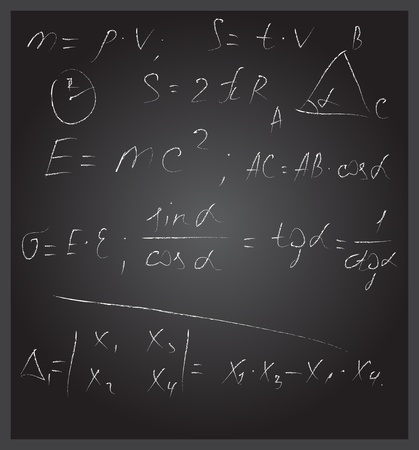 m = ρ · V; S = t · V
S = 2πR
B
A α C
E = mc²; AC = AB · cosα
σ = E · ε; sinα / cosα = tgα = 1 / ctgα
Δ₁ = | x₁ x₃ |
| x₂ x₄ | = x₃ · x₂ – x₁ · x₄.